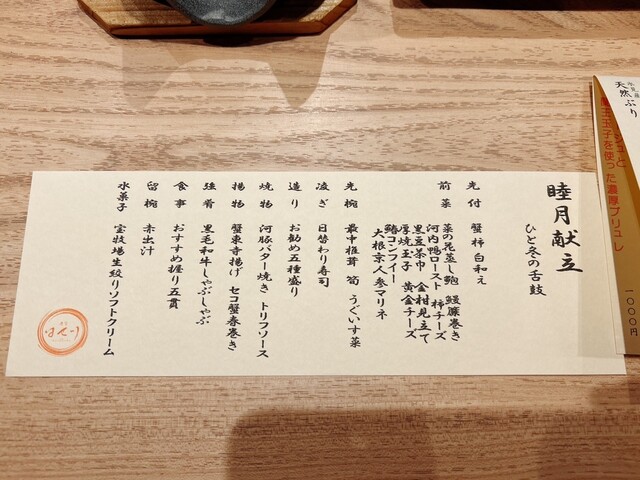 睦月献立
ひと冬の舌鼓
先付 蟹柿白和え
前菜 菜の花蒸し鮑 鰻簾巻き
河内鴨ロースト 柿チーズ
黒豆茶巾 金柑見立て
厚焼玉子 黄金チーズ
鰆コンフィー
大根京人参マリネ
先椀 最中椎茸 筍 うぐいす菜
凌ぎ 日替わり寿司
造り お勧め五種盛り
焼物 河豚バター焼き トリフソース
揚物 蟹東寺揚げ セコ蟹春巻き
強肴 黒毛和牛しゃぶしゃぶ
食事 おすすめ握り五貫
留椀 赤出汁
水菓子 宝牧場生絞りソフトクリーム
天然ぶり
玉子を使った濃厚ブリュレ
一〇〇〇円